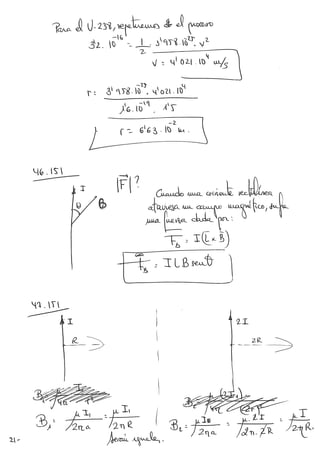 Para el U-238, repetiremos el proceso
32. 10^-16 = 1/2 . 3'958.10^-25 . v^2
v = 4'021.10^4 m/s
r = 3'958.10^-25 . 4'021.10^4 / 1'6.10^-19 . 1'5
r = 6'63.10^-2 m.
46.151
I
θ
B
|F|?
Cuando una corriente rectilínea
atraviesa un campo magnético, sufre
una fuerza dada por:
F_B = I (L x B)
F_B = I L B senθ
47.151
I
R
2I
2R
B_1 = μ I_1 / 2πa = μ I_1 / 2πR
B_2 = / 2πa = μ.2I / 2π.2R = μI / 2πR.
Serán iguales.
21-